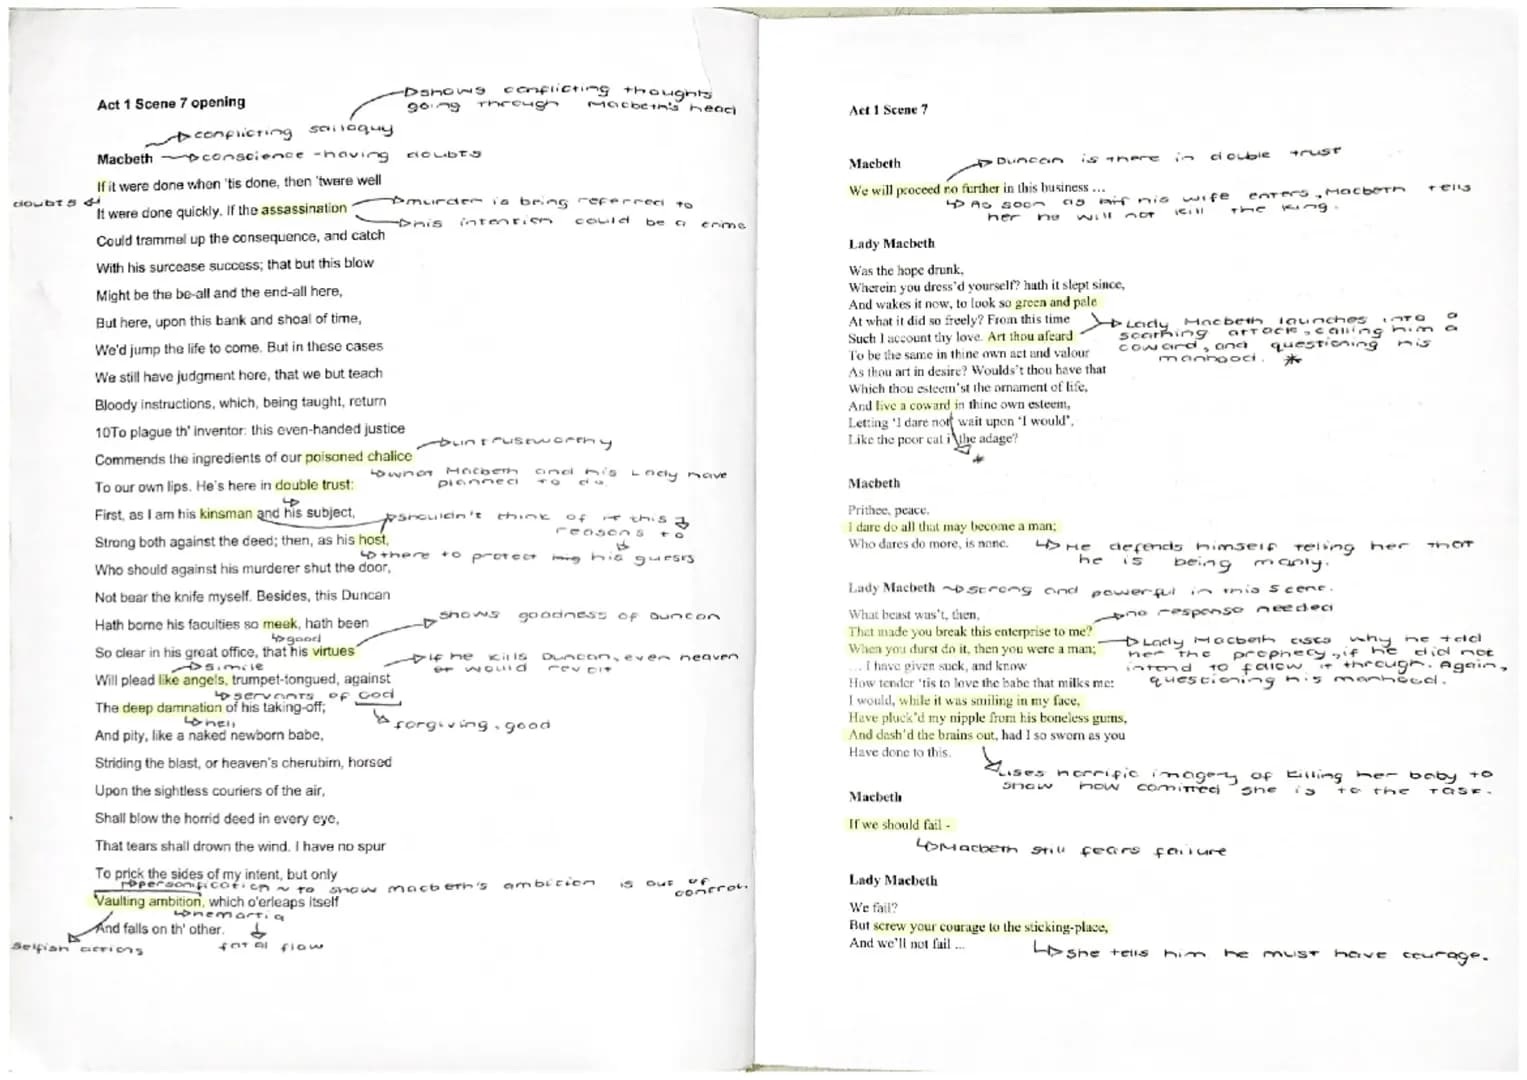 Act 1 Scene 7 opening
shows conflicting thoughts
going through Macbeth's head
conflicting soiloquy
Macbeth conscience - having doubts
If it were done when 'tis done, then 'twere well
doubts
It were done quickly. If the assassination
murder is being referred to
his intention could be a crime
Could trammel up the consequence, and catch
With his surcease success; that but this blow
Might be the be-all and the end-all here,
But here, upon this bank and shoal of time,
We'd jump the life to come. But in these cases
We still have judgment here, that we but teach
Bloody instructions, which, being taught, return
10To plague th' inventor: this even-handed justice
untrustworthy
Commends the ingredients of our poisoned chalice
what Macbeth and his Lady have
planned to do.
To our own lips. He's here in double trust:
First, as I am his kinsman and his subject,
shouldn't think of it this
reasons to
Strong both against the deed; then, as his host,
there to protect his guests
Who should against his murderer shut the door,
Not bear the knife myself. Besides, this Duncan
shows goodness of Duncan
Hath borne his faculties so meek, hath been
good
So clear in his great office, that his virtues
simile
if he kills Duncan, even heaven
would revolt
Will plead like angels, trumpet-tongued, against
servants of God
The deep damnation of his taking-off;
hell
forgiving, good
And pity, like a naked newborn babe,
Striding the blast, or heaven's cherubim, horsed
Upon the sightless couriers of the air,
Shall blow the horrid deed in every eye,
That tears shall drown the wind. I have no spur
To prick the sides of my intent, but only
personification ~ to show macbeth's ambition is out of
control.
Vaulting ambition, which o'erleaps itself
hemartia
And falls on th' other.
selfish actions
fatal flow
Act 1 Scene 7
Macbeth
Duncan is there in double trust
We will proceed no further in this business ...
As soon as his wife enters, Macbeth tells
her he will not kill the king.
Lady Macbeth
Was the hope drunk,
Wherein you dress'd yourself? hath it slept since,
And wakes it now, to look so green and pale
At what it did so freely? From this time
Lady Macbeth launches into a
scathing attack, calling him a
coward, and questioning his
manhood. *
Such I account thy love. Art thou afeard
To be the same in thine own act and valour
As thou art in desire? Woulds't thou have that
Which thou esteem'st the ornament of life,
And live a coward in thine own esteem,
Letting 'I dare not' wait upon 'I would',
Like the poor cat i' the adage?
*
Macbeth
Prithee, peace.
I dare do all that may become a man;
Who dares do more, is none.
He defends himself telling her that
he is being manly.
Lady Macbeth strong and powerful in this scene.
What beast was't, then,
no response needed
That made you break this enterprise to me?
When you durst do it, then you were a man;
Lady Macbeth asks why he told
her the prophecy, if he did not
intend to follow it through. Again,
questioning his manhood.
... I have given suck, and know
How tender 'tis to love the babe that milks me:
I would, while it was smiling in my face,
Have pluck'd my nipple from his boneless gums,
And dash'd the brains out, had I so sworn as you
Have done to this.
uses horrific imagery of killing her baby to
show how comitted she is to the task.
Macbeth
If we should fail -
Macbeth still fears failure
Lady Macbeth
We fail?
But screw your courage to the sticking-place,
And we'll not fail ...
she tells him he must have courage.